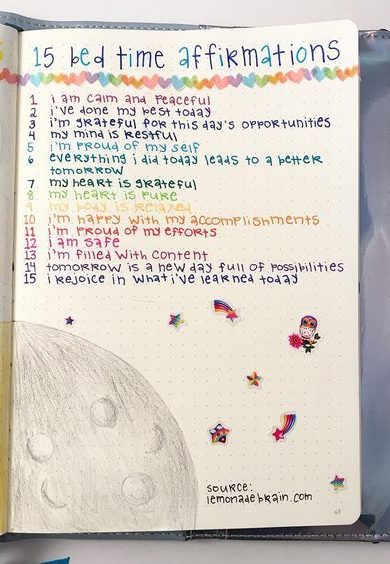 15 bed time affirmations
1 i am calm and peaceful
2 i've done my best today
3 i'm grateful for this day's opportunities
4 my mind is restful
5 i'm proud of my self
6 everything i did today leads to a better
tomorrow
7 my heart is grateful
8 my heart is pure
9 my body is relaxed
10 i'm happy with my accomplishments
11 i'm proud of my efforts
12 i am safe
13 i'm filled with content
14 tomorrow is a new day full of possibilities
15 i rejoice in what i've learned today
source:
lemonadebrain.com